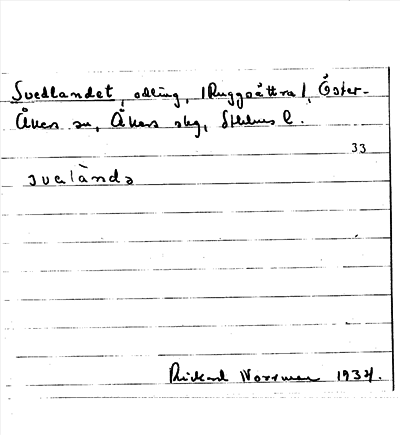 Svedlandet, odling, /Ruggsättra/, Öster-
Åkers sn, Åkers skg, Sthlms l.
33
svelàndə
Rickard Norrman 1934.